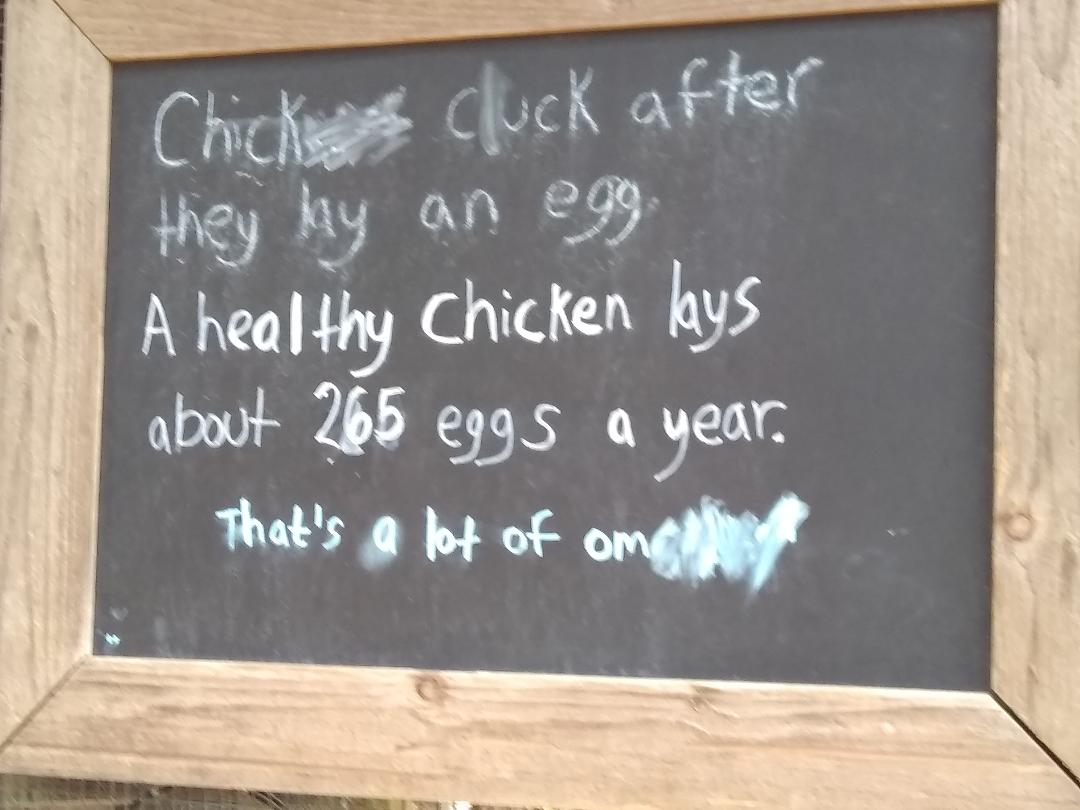 Chick cluck after
they lay an egg.
A healthy Chicken lays
about 265 eggs a year.
That's a lot of